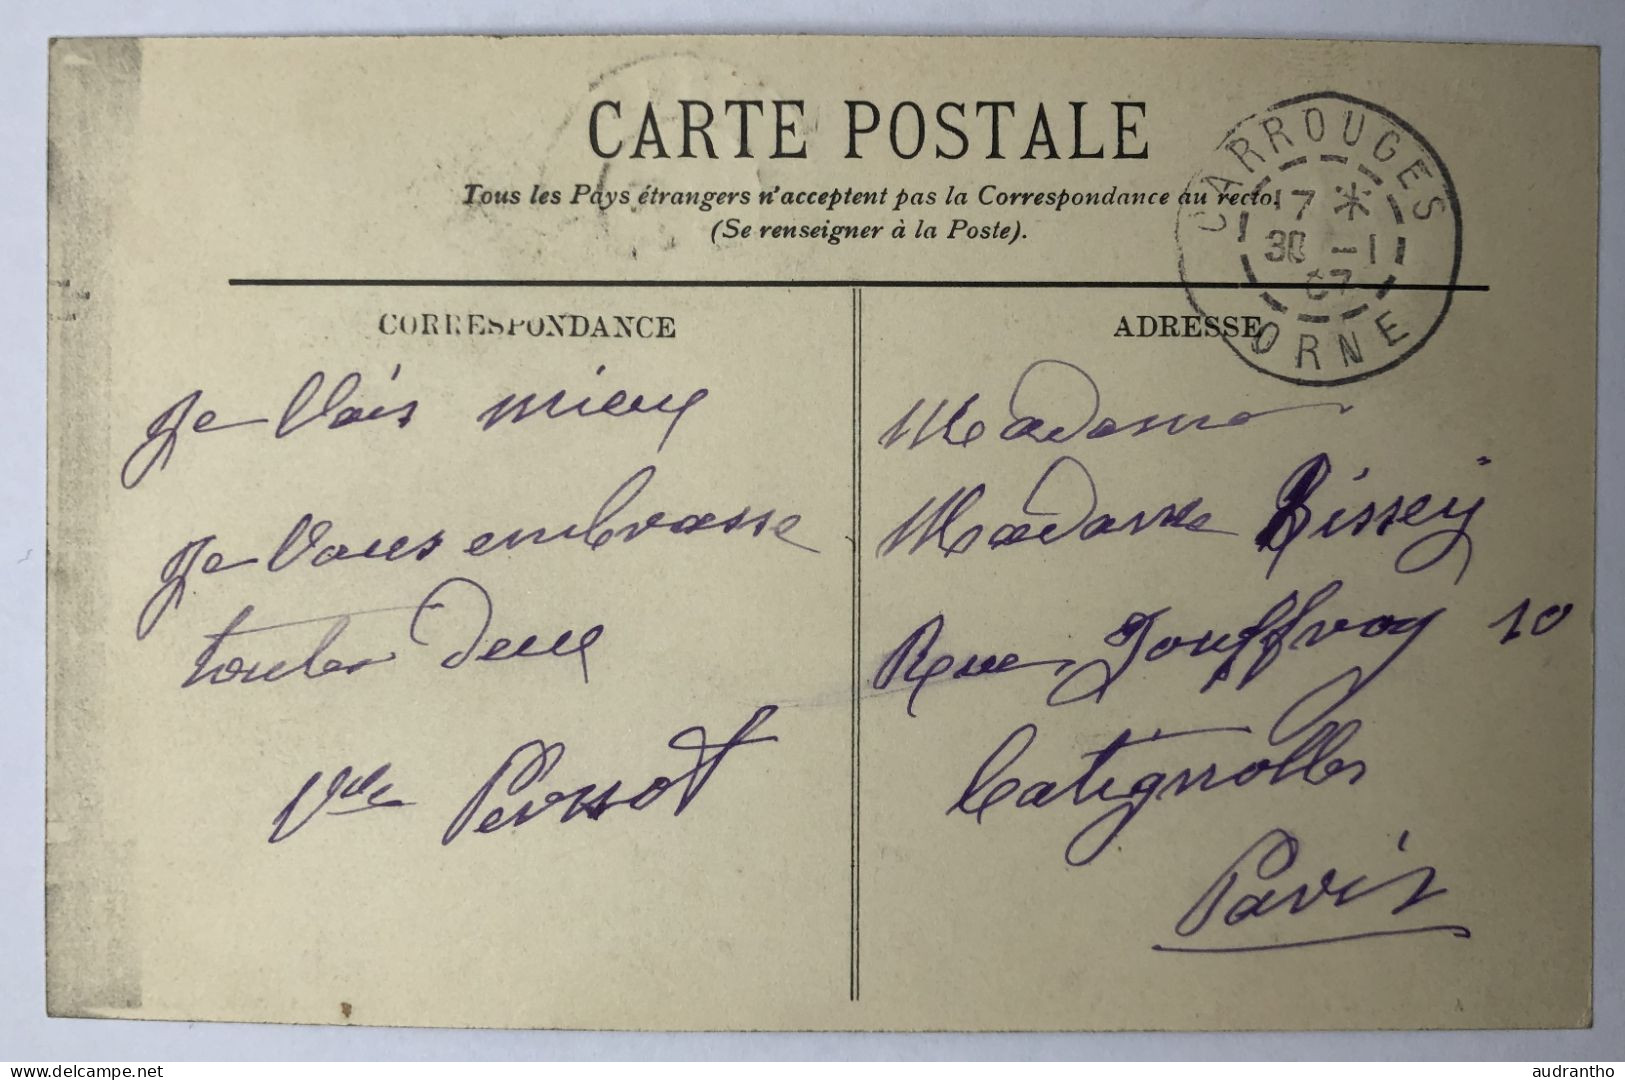 CARTE POSTALE
Tous les Pays étrangers n'acceptent pas la Correspondance au recto.
(Se renseigner à la Poste).
CARROUGES
17 *
30 -1
07
ORNE
CORRESPONDANCE
Je Vais mieux
Je Vous embrasse
toutes deux
Vve Perssot
ADRESSE
Madame
Madame Rissey
Rue Jouffroy 10
Batignolles
Paris
delcampe.net
audrantho